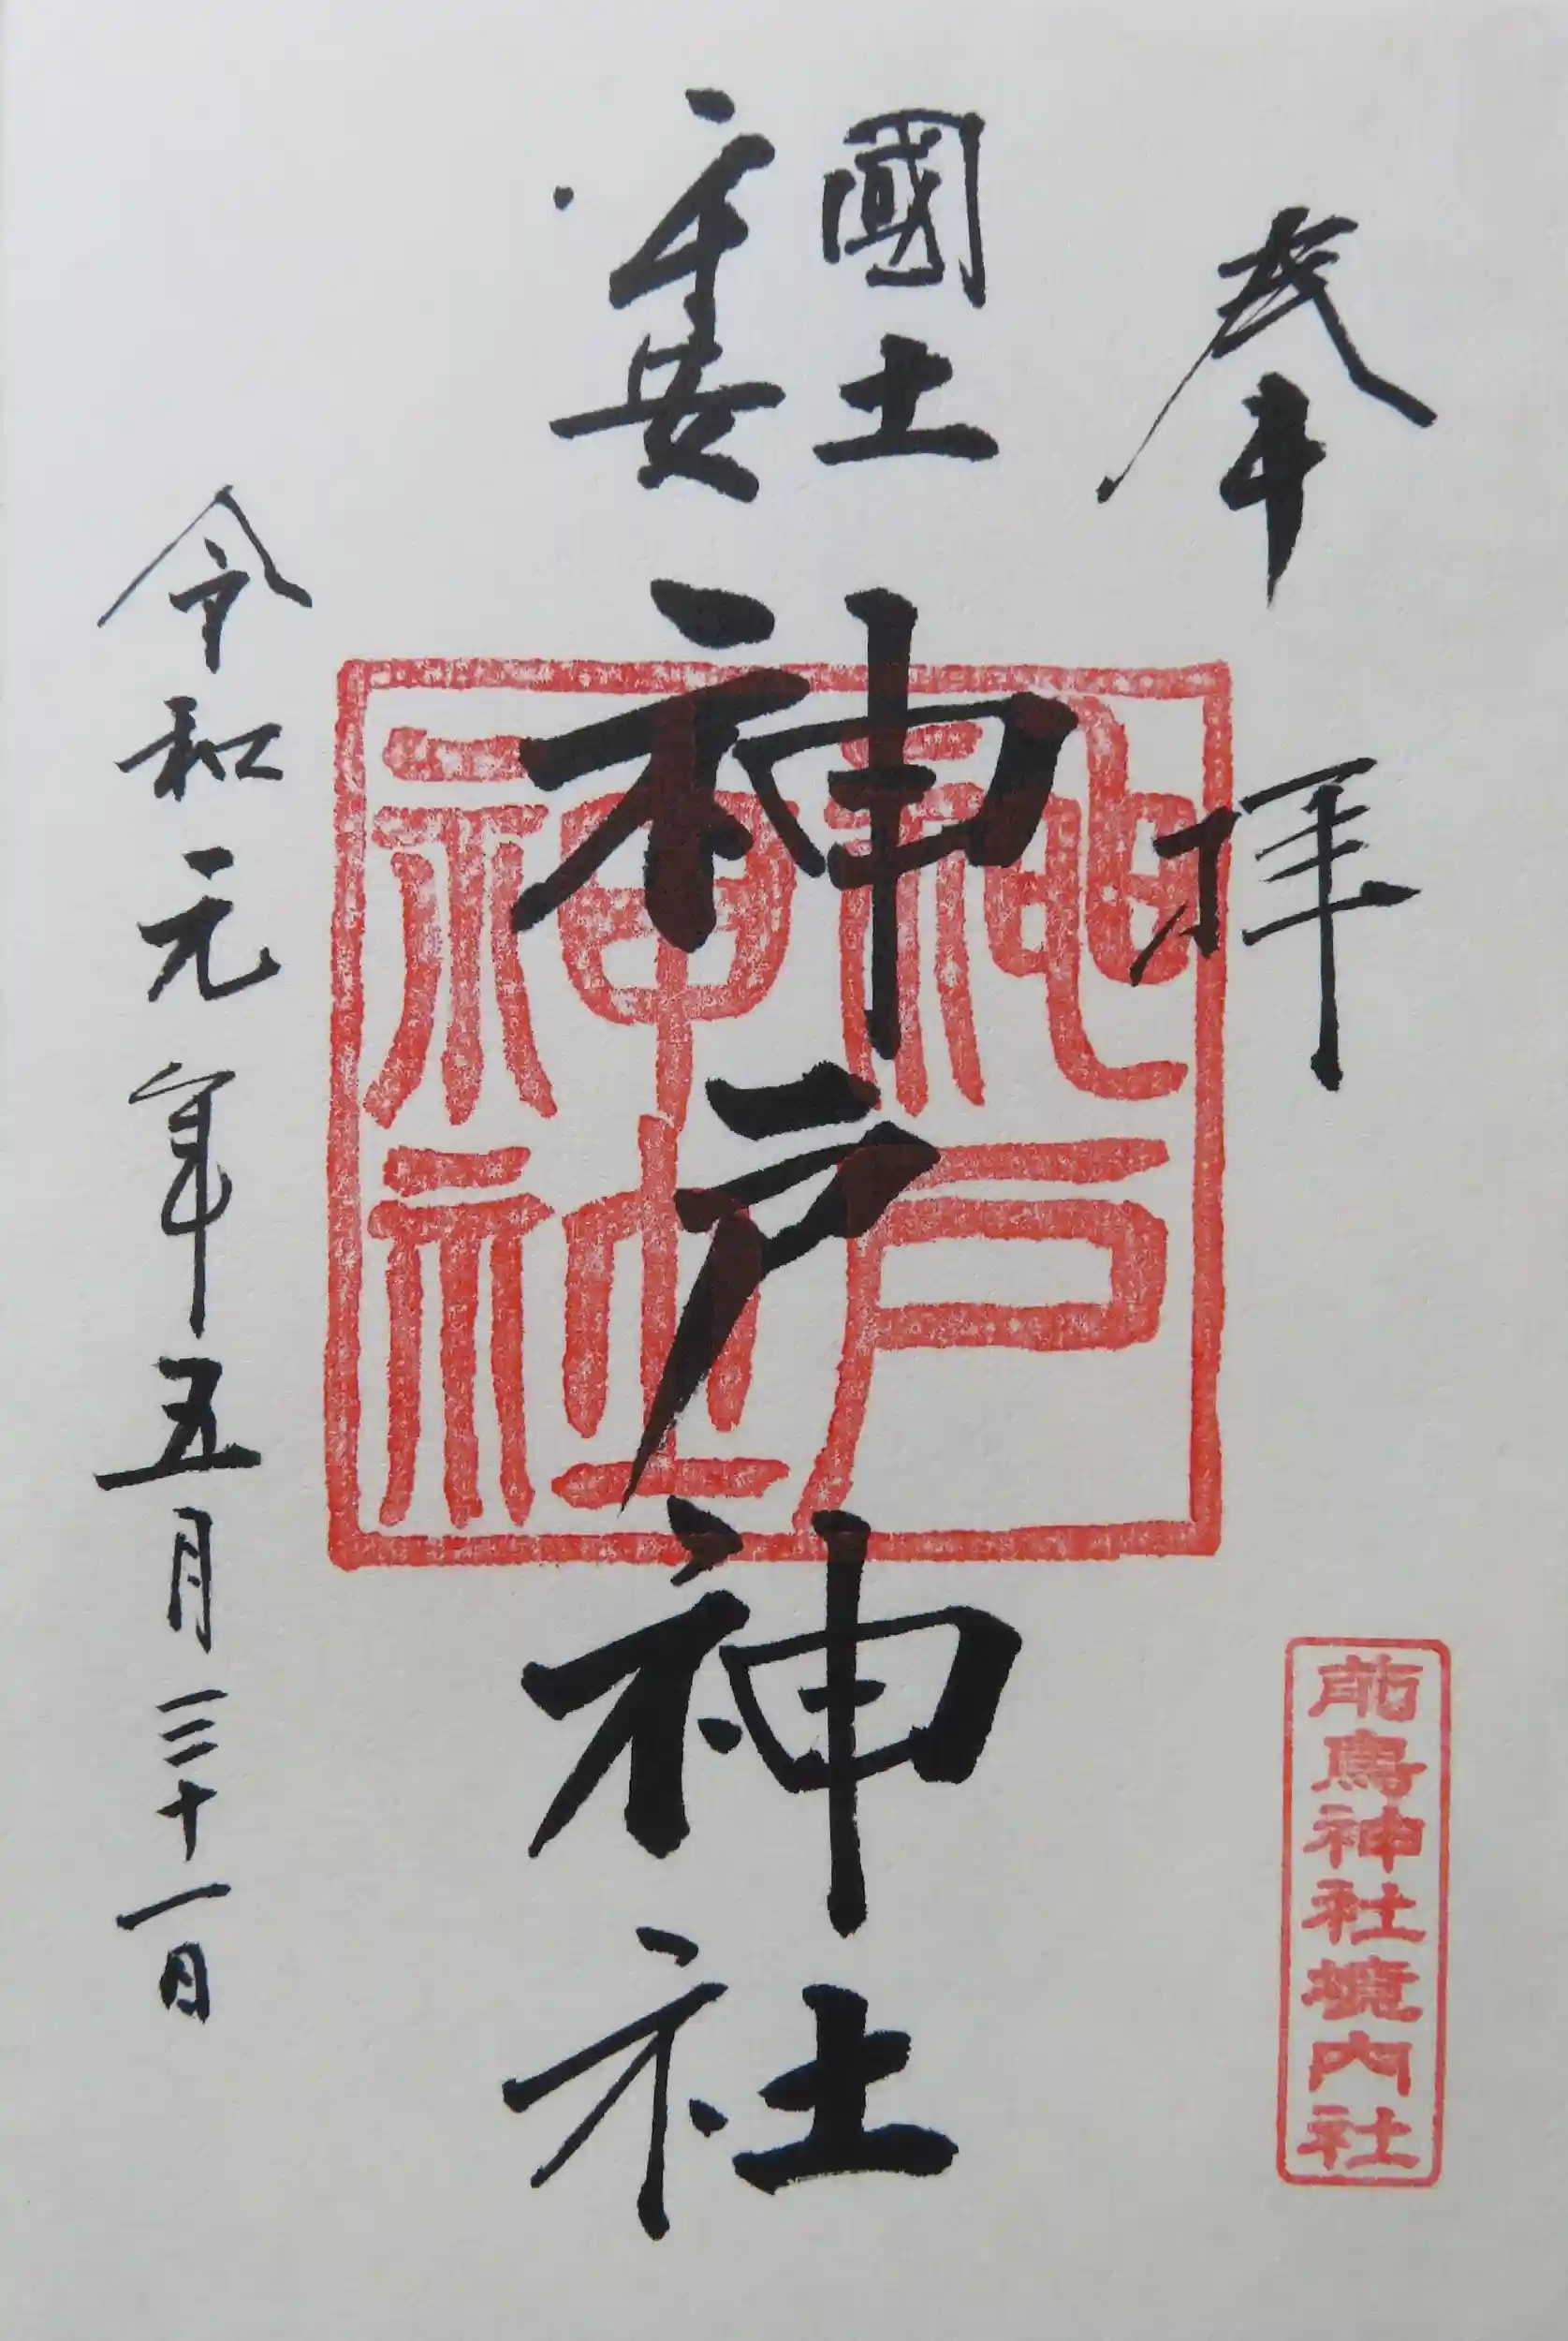 奉拝
國土
神戸神社
神戸
神社
令和元年五月三十一日
前鳥神社境内社